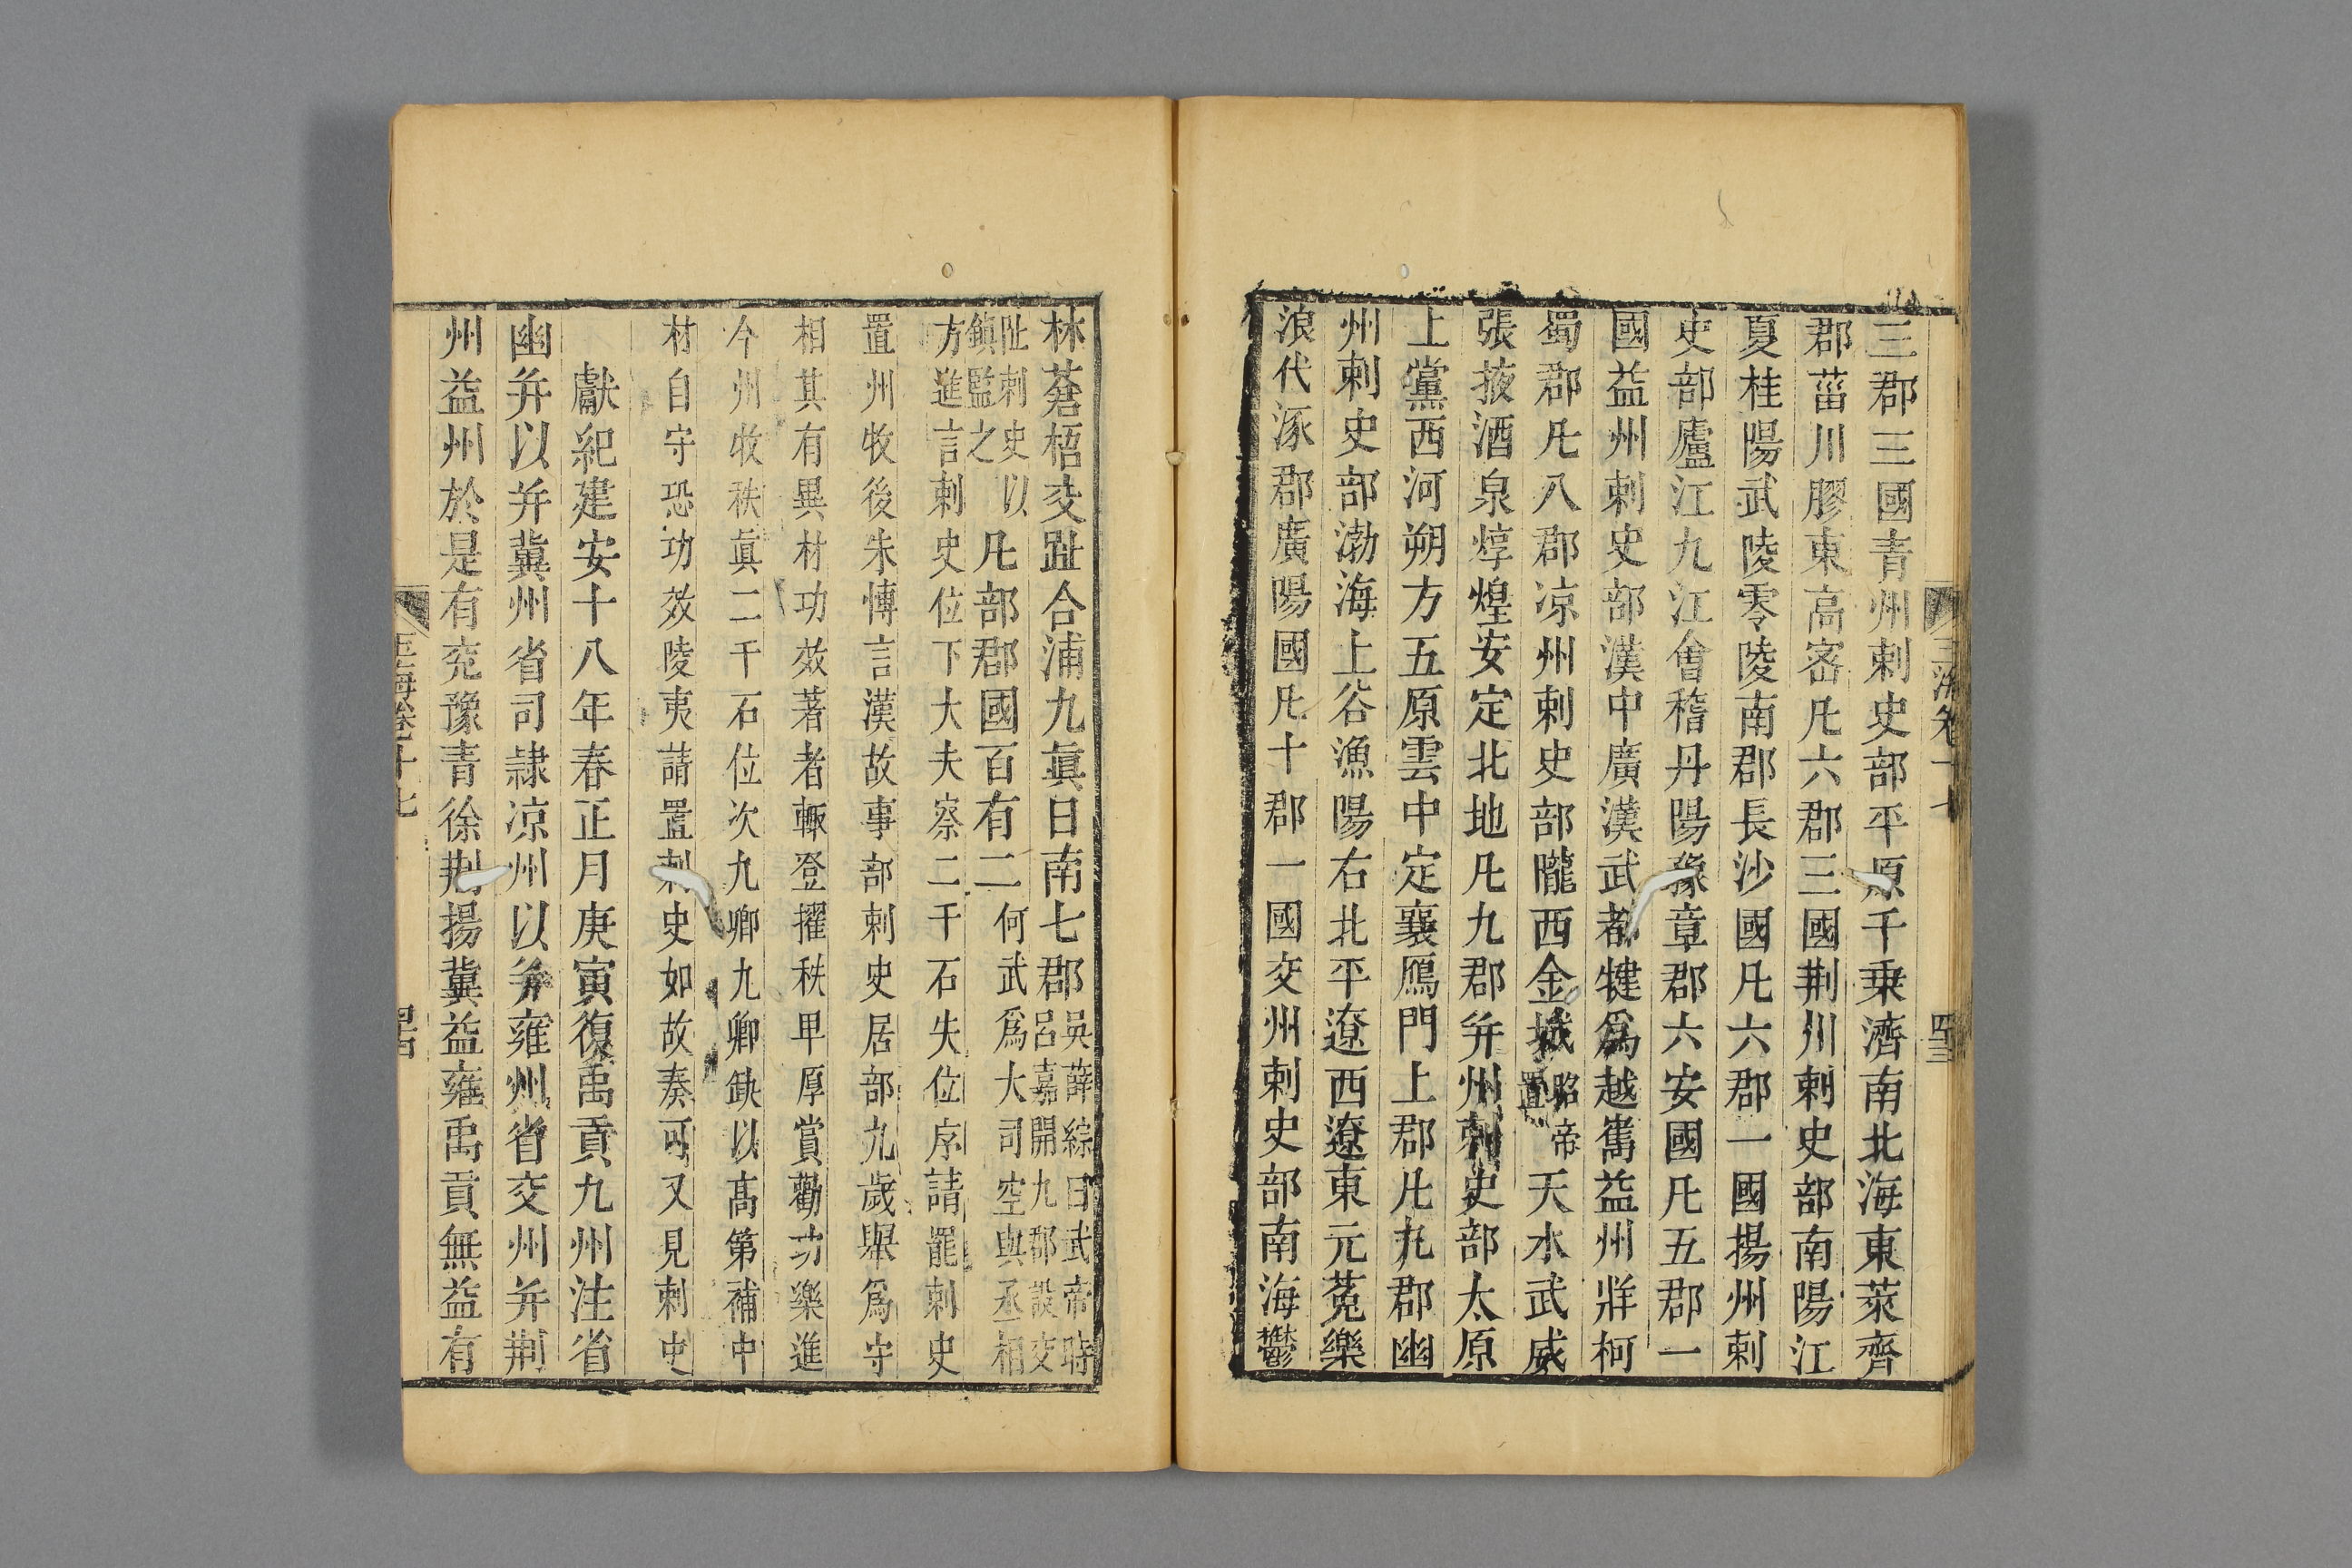 三郡三國青州刺史部平原千乗濟南北海東萊齊
郡菑川膠東高宻凡六郡三國荆州刺史部南陽江
夏桂陽武陵零陵南郡長沙國凡六郡一國揚州刺
史部廬江九江會稽丹陽豫章郡六安國凡五郡一
國益州刺史部漢中廣漢武都犍爲越嶲益州牂柯
蜀郡凡八郡凉州刺史部隴西金城昭帝置天水武威
張掖酒泉燉煌安定北地凡九郡并州刺史部太原
上黨西河朔方五原雲中定襄鴈門上郡凡九郡幽
州刺史部渤海上谷漁陽右北平遼西遼東元菟樂
浪代涿郡廣陽國凡十郡一國交州刺史部南海鬱
玉海卷十七
四三
林蒼梧交趾合浦九眞日南七郡吳薛綜曰武帝時呂嘉開九郡設交
趾刺史以鎮監之凡部郡國百有二何武爲大司空與丞相
方進言刺史位下大夫察二千石失位序請罷刺史
置州牧後朱博言漢故事部刺史居部九歲舉爲守
相其有異材功效著者輒登擢秩卑厚賞勸功樂進
今州牧秩眞二千石位次九卿九卿缺以髙第補中
材自守恐功效陵夷請置刺史如故奏可又見刺史
獻紀建安十八年春正月庚寅復禹貢九州注省
幽并以并冀州省司隷凉州以并雍州省交州并荆
州益州於是有兖豫青徐荆揚冀益雍禹貢無益有
玉海卷十七
四古